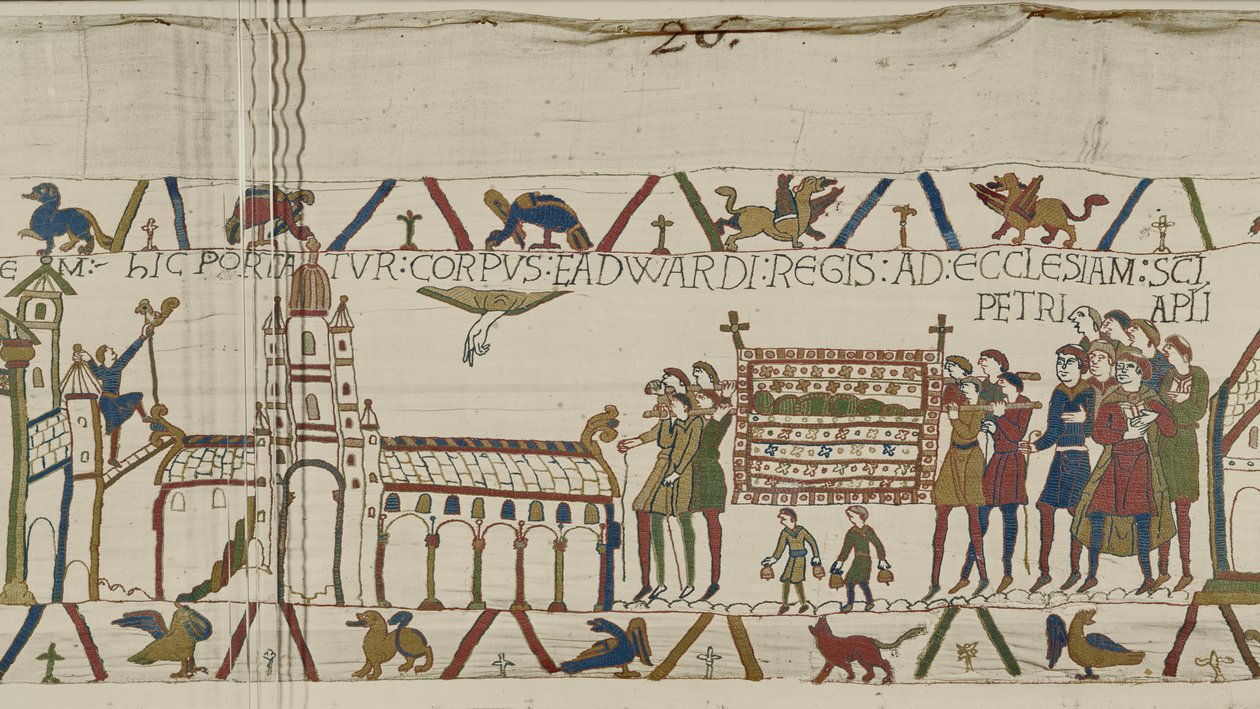 26.
E M:- hIC PORTATVR: CORPVS: EADWARDI: REGIS: AD: ECCLESIAM: SCI
PETRI APLI